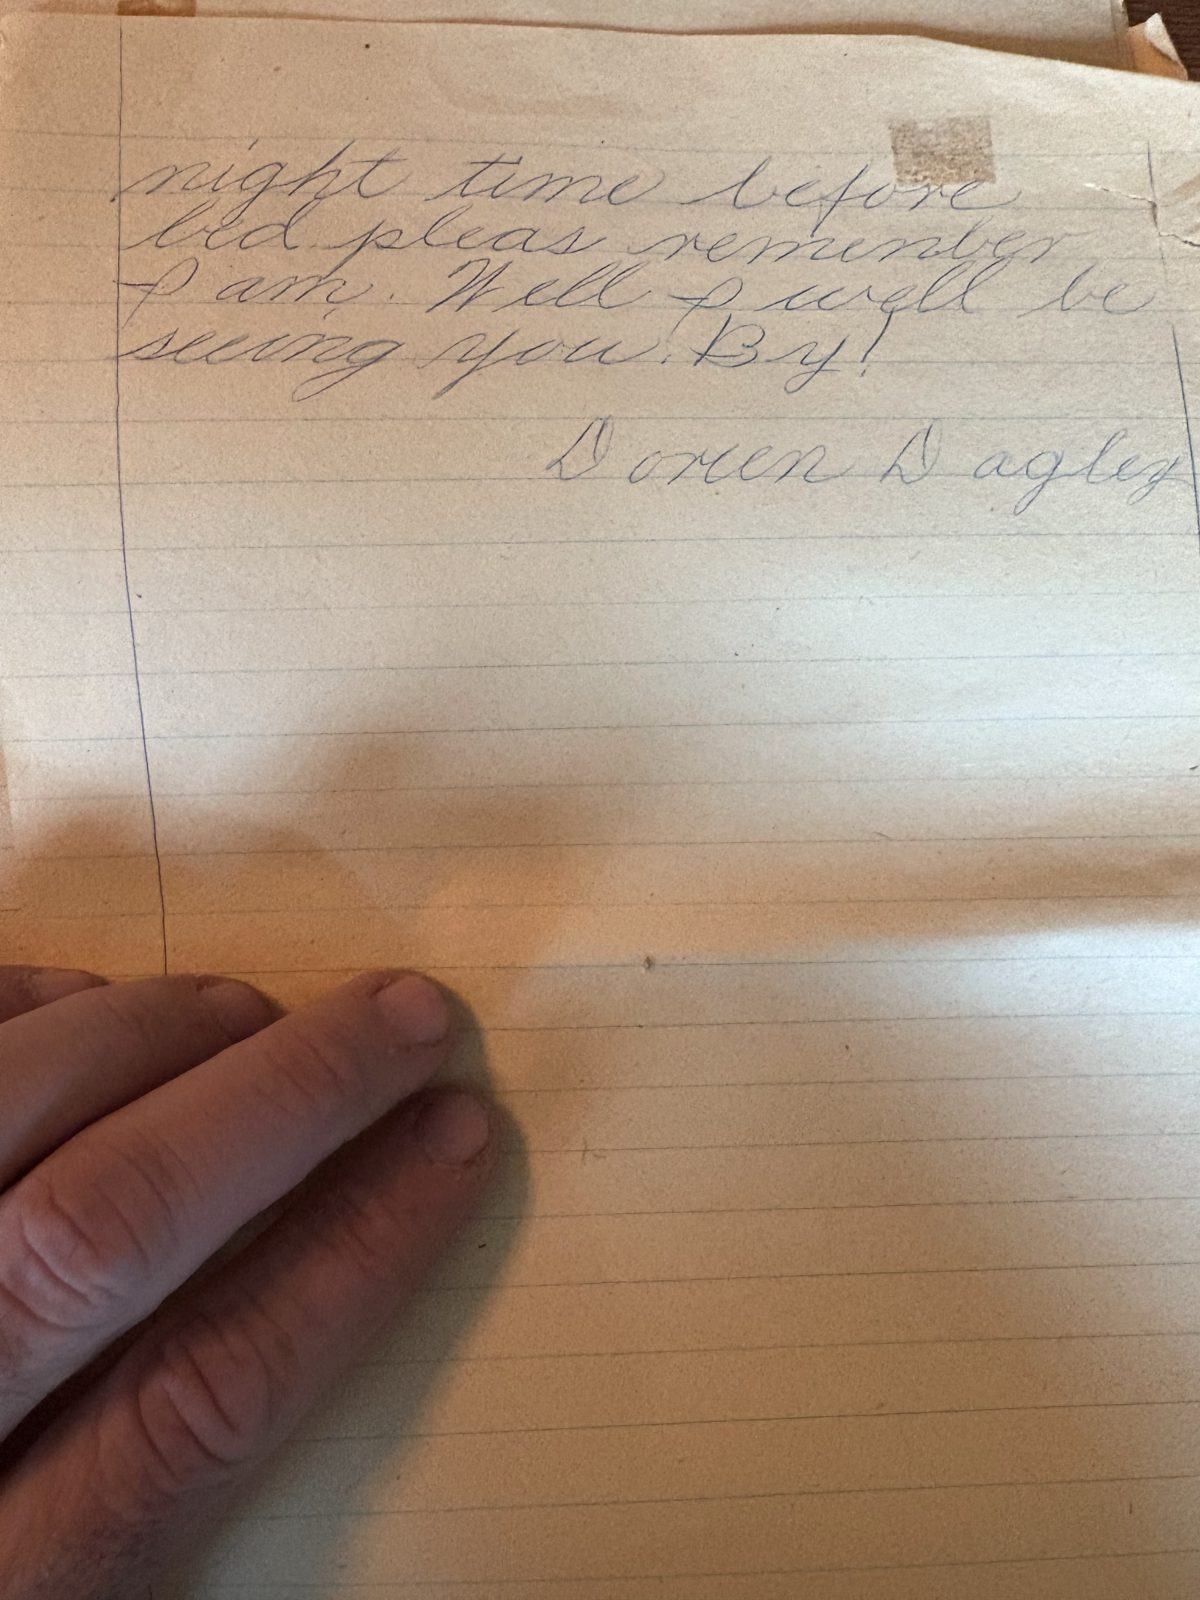 night time before
bed pleas remember
I am. Well I well be
seeing you. By!
Doreen Dagley